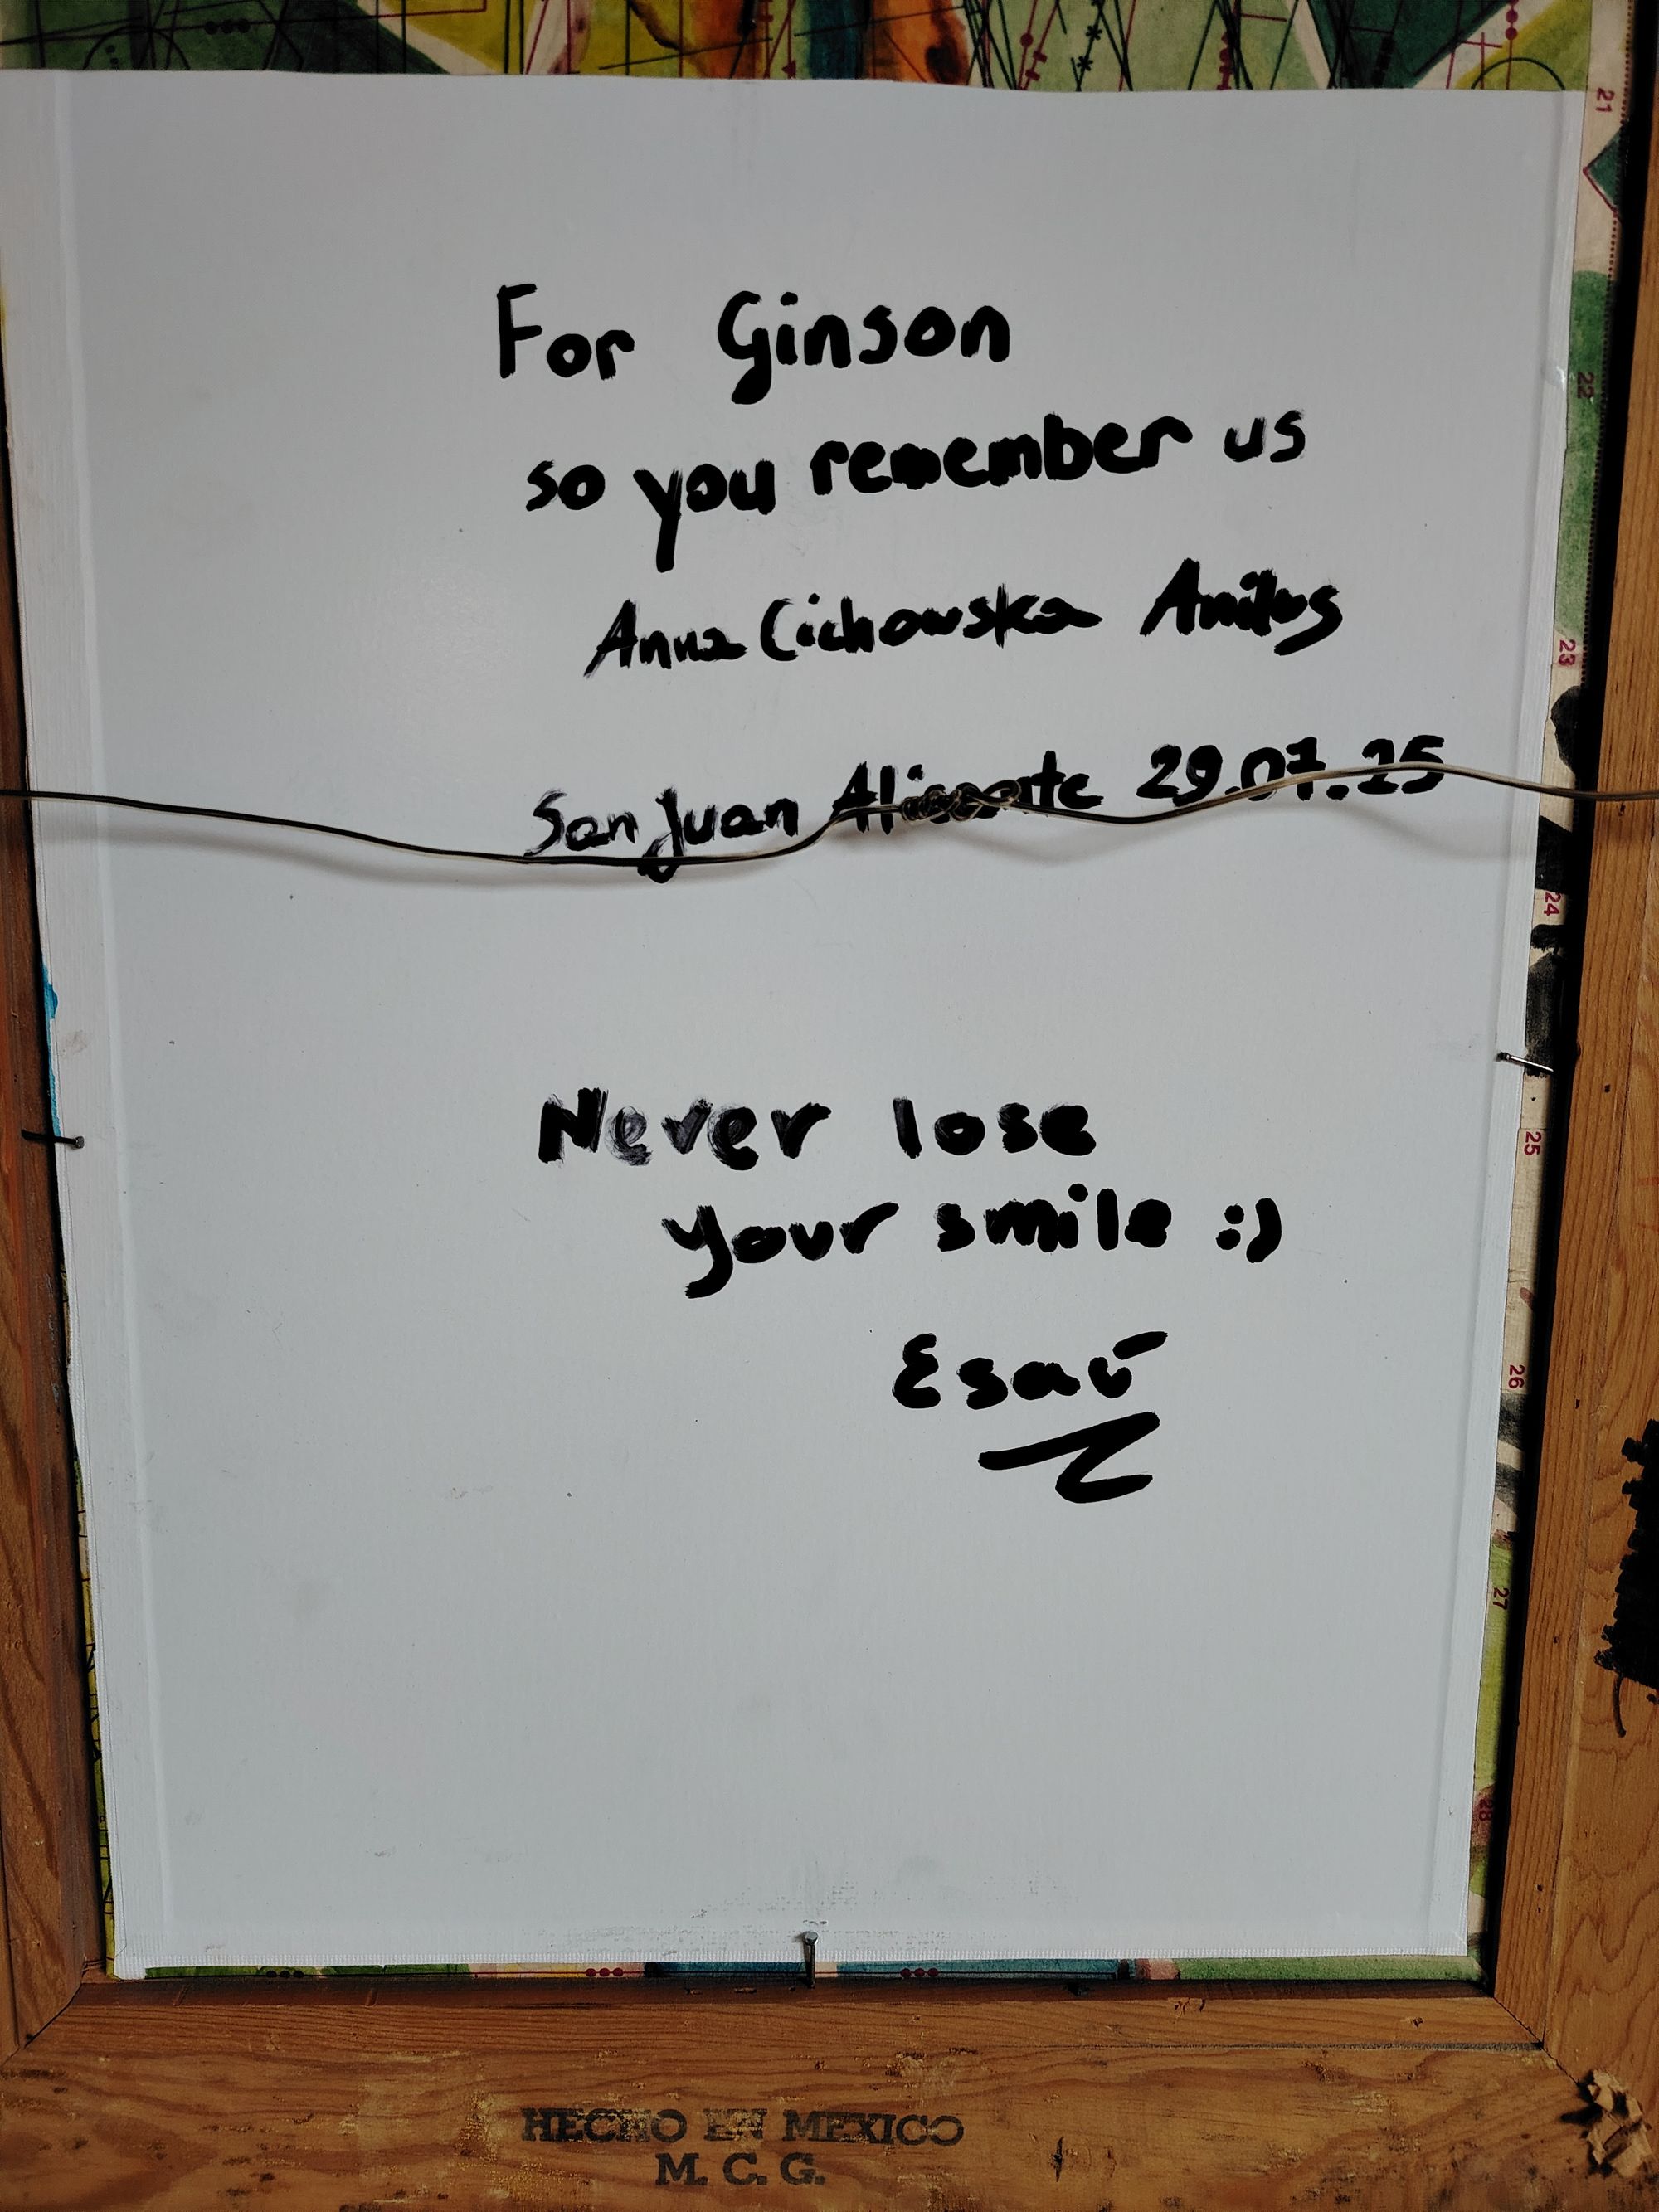 For Ginson
so you remember us
Anna Cichowska
San Juan Alicante 29.07.25
Never lose
your smile :)
Esaú
HECHO EN MEXICO
M. C. G.
21
22
23
24
25
26
27
28